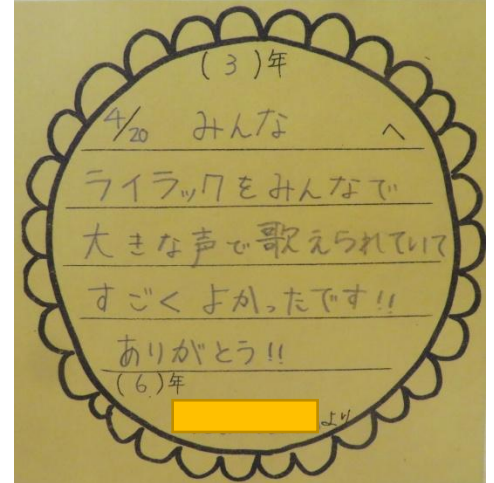 (3)年
4/20 みんな へ
ライラックをみんなで
大きな声で歌えられていて
すごくよかったです!!
ありがとう!!
(6)年
より